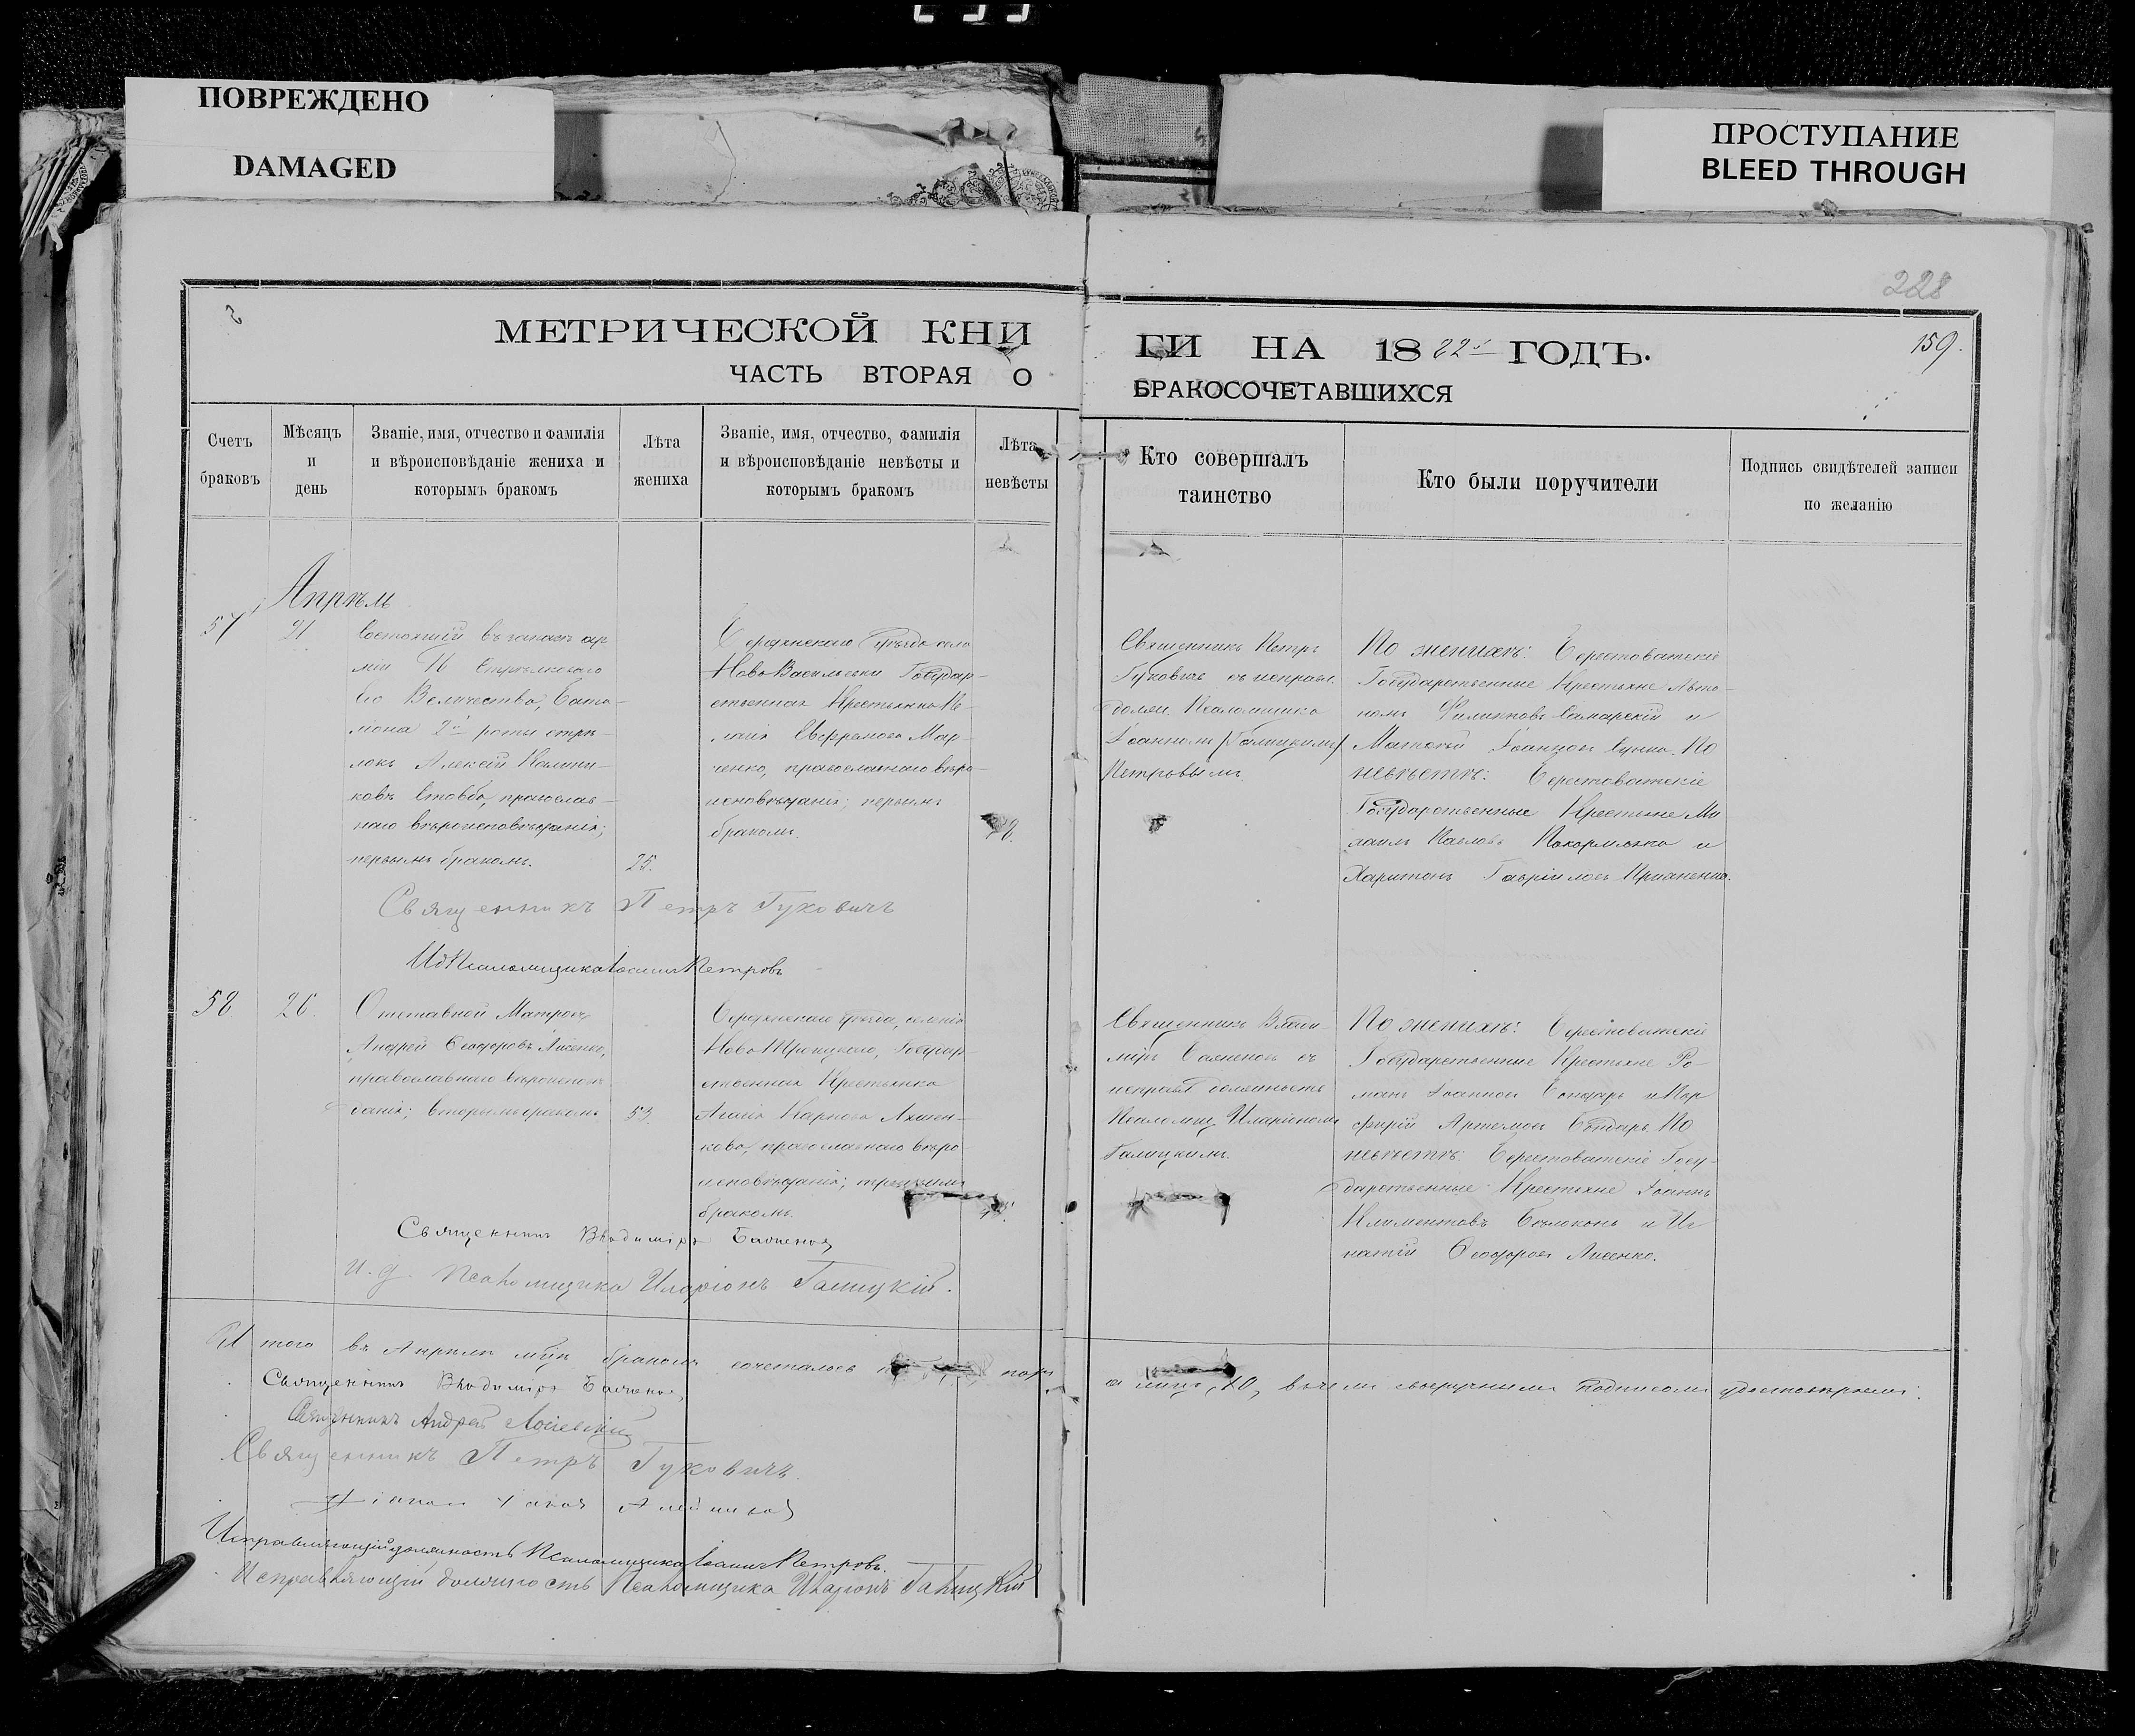 ПОВРЕЖДЕНО
DAMAGED
ПРОСТУПАНИЕ
BLEED THROUGH
228
159.
МЕТРИЧЕСКОЙ КНИ
ГИ НА 18 ГОДЪ.
ЧАСТЬ ВТОРАЯ О
БРАКОСОЧЕТАВШИХСЯ
Счетъ
браковъ
Мѣсяцъ
и
день
Званіе, имя, отчество и фамилія
и вѣроисповѣданіе жениха и
которымъ бракомъ
Лѣта
жениха
Званіе, имя, отчество, фамилія
и вѣроисповѣданіе невѣсты и
которымъ бракомъ
Лѣта
невѣсты
Кто совершалъ
таинство
Кто были поручители
Подпись свидѣтелей записи
по желанію
Апрѣль
57
21
Состоящій въ запасѣ ар
міи Стрѣлковаго
Его Величества, Бата-
ліона 2й роты стрѣ-
локъ Алексѣй Калини-
ковъ православ-
наго вѣроисповѣданія;
первымъ бракомъ.
25.
Бердянскаго Уѣзда села
НовоВасильевки Государ-
ственная Крестьянка
Мар-
ченко, православнаго вѣро-
исповѣданія; первымъ
бракомъ.
Священникъ Петръ
Гуковичъ съ исправл.
должн. Псаломщика
Іоанномъ
Петровымъ.
По женихѣ: Берестоватскіе
Государственные Крестьяне Авто-
номъ Филиповъ Самарскій и
Матвѣй Іоанновъ По
невѣстѣ: Берестоватскіе
Государственные Крестьяне Ми
хаилъ Павловъ и
Харитонъ Гавріиловъ
Священникъ Петръ Гуковичъ
ИдПсаломщика Іоаннъ Петровъ
58
26.
Отставной Матросъ
Андрей Ѳеодоровъ Лисенко,
православнаго вѣроисповѣ
данія; вторымъ бракомъ
53.
Бердянскаго Уѣзда, селенія
НовоТроицкаго, Государ-
ственная Крестьянка
Агафія Карпова
православнаго вѣро
исповѣданія; третьимъ
бракомъ.
Священникъ Влади-
міръ Баженовъ съ
исправл должность
Псаломщ. Иларіономъ
Галицкимъ.
По женихѣ: Берестоватскіе
Государственные Крестьяне Ро-
манъ Іоанновъ Бондарь и Пор
фирій Артемовъ Бондарь. По
невѣстѣ: Берестоватскіе Госу-
дарственные Крестьяне Іоаннъ
Климентовъ Бѣлоконь и Иг
натій Ѳеодоровъ Лисенко.
Священникъ Владиміръ Баженовъ
И. д. Псаломщика Иларіонъ Галицкій.
Итого въ Апрѣлѣ мцѣ бракомъ сочеталось
въ чемъ своеручными подписами удостовѣряемъ:
Священникъ Владиміръ Баженовъ,
Священникъ Андрей
Священникъ Петръ Гуковичъ.
Діаконъ Іаковъ
Исправляющій должность Псаломщика Іоаннъ Петровъ.
Исправляющій должность Псаломщика Иларіонъ Галицкій